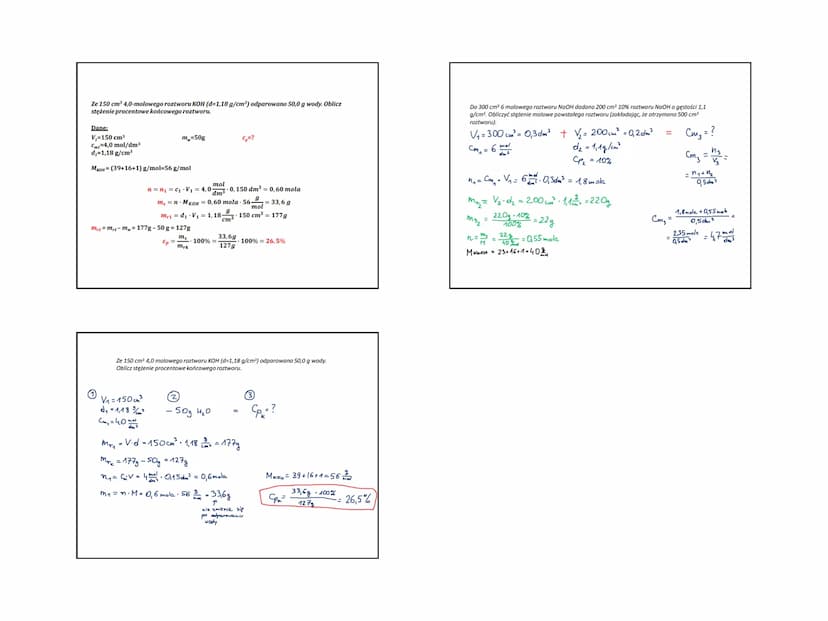 Ze 150 cm³ 4,0-molowego roztworu KOH (d=1,18 g/cm³) odparowano 50,0 g wody. Oblicz
stężenie procentowe końcowego roztworu.
Dane:
V₁=150 cm³ mw=50g cp=?
cm1=4,0 mol/dm³
d₁=1,18 g/cm³
MKOH= (39+16+1) g/mol=56 g/mol
n = n₁ = c₁ · V₁ = 4,0 mol/dm³ · 0,150 dm³ = 0,60 mola
ms = n · MKOH = 0,60 mola · 56 g/mol = 33,6 g
mr1 = d₁ · V₁ = 1,18 g/cm³ · 150 cm³ = 177g
mr2 = mr1 - mw = 177g - 50 g = 127g
cp = ms/mrk · 100% = 33,6g/127g · 100% = 26,5%
Do 300 cm³ 6 molowego roztworu NaOH dodano 200 cm³ 10% roztworu NaOH o gęstości 1,1
g/cm³. Obliczyć stężenie molowe powstałego roztworu (zakładając, że otrzymano 500 cm³
roztworu).
V₁ = 300 cm³ = 0,3dm³ + V₂ = 200cm³ = 0,2dm³ = Cm₃ = ?
Cm₁ = 6 mol/dm³ d₂ = 1,1g/cm³ Cm₃ = n₃/V₃ =
Cp₂ = 10% = n₁+n₂/0,5dm³
n₁ = Cm₁ · V₁ = 6 mol/dm³ · 0,3dm³ = 1,8 mola
mr₂ = V₂ · d₂ = 200cm³ · 1,1 g/cm³ = 220g
m₂ = 220g · 10%/100% = 22g Cm₃ = 1,8mola + 0,55mola/0,5dm³ =
n = m/M = 22g/40 g/mol = 0,55 mola = 2,35 mola/0,5dm³ = 4,7 mol/dm³
MNaOH = 23+16+1 = 40 g/mol
Ze 150 cm³ 4,0 molowego roztworu KOH (d=1,18 g/cm³) odparowano 50,0 g wody.
Oblicz stężenie procentowe końcowego roztworu.
① V₁ = 150cm³ ② ③
d₁ = 1,18 g/cm³ - 50g H₂O = Cpk = ?
Cm₁ = 4,0 mol/dm³
mr₁ = V · d = 150cm³ · 1,18 g/cm³ = 177g
mrk = 177g - 50g = 127g
n₁ = C · V = 4 mol/dm³ · 0,15dm³ = 0,6 mola MKOH = 39 + 16 + 1 = 56 g/mol
m₁ = n · M = 0,6 mola · 56 g/mol = 33,6g Cpk = 33,6g · 100%/127g = 26,5%
↑
nie zmienia się
po odparowaniu
wody